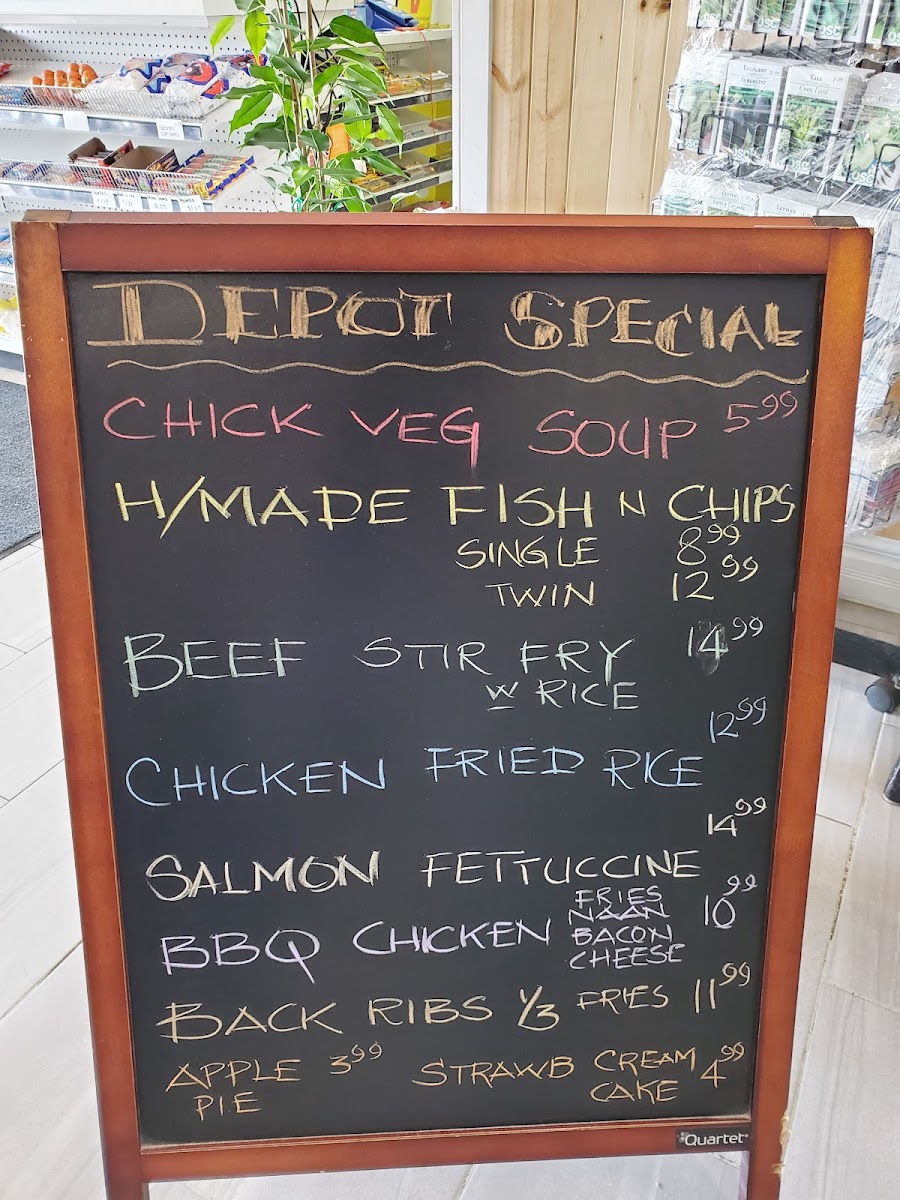 DEPOT SPECIAL
CHICK VEG SOUP 5.99
H/MADE FISH N CHIPS
SINGLE 8.99
TWIN 12.99
BEEF STIR FRY 14.99
W RICE
12.99
CHICKEN FRIED RICE
14.99
SALMON FETTUCCINE
BBQ CHICKEN FRIES NAAN BACON CHEESE 10.99
BACK RIBS 1/3 FRIES 11.99
APPLE PIE 3.99 STRAWB CREAM CAKE 4.99
Quartet
EGGPLANT
AUBERGINE
KALE
LETTUCE